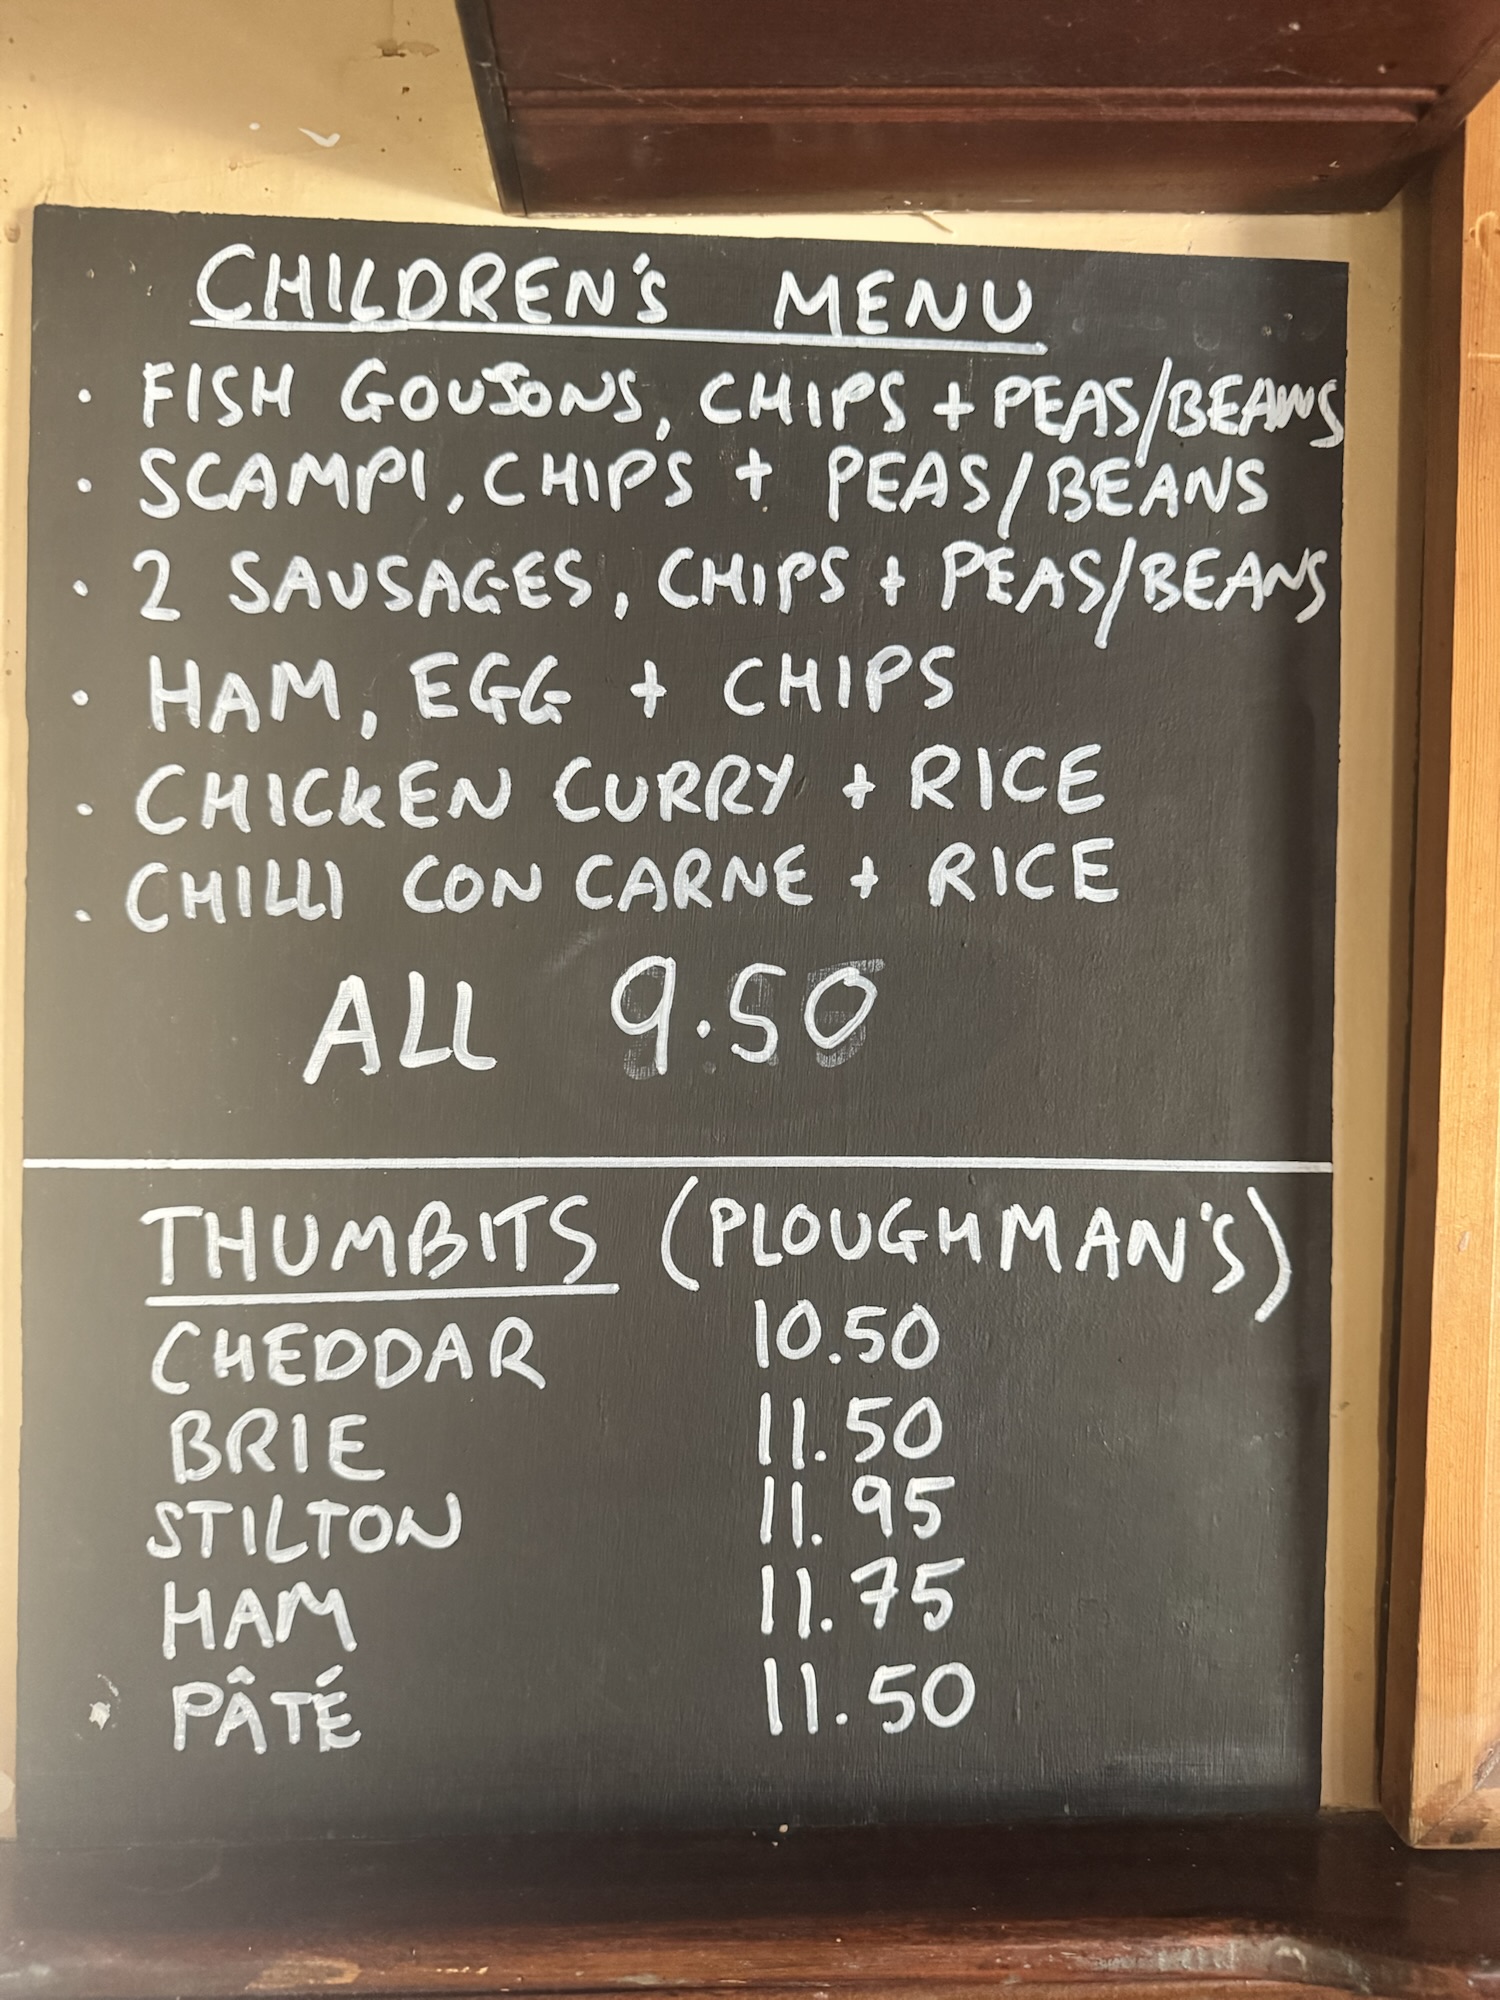 CHILDREN'S MENU
· FISH GOUJONS, CHIPS + PEAS/BEANS
· SCAMPI, CHIPS + PEAS/BEANS
· 2 SAUSAGES, CHIPS + PEAS/BEANS
· HAM, EGG + CHIPS
· CHICKEN CURRY + RICE
· CHILLI CON CARNE + RICE
ALL 9.50
THUMBITS (PLOUGHMAN'S)
CHEDDAR 10.50
BRIE 11.50
STILTON 11.95
HAM 11.75
PÂTÉ 11.50